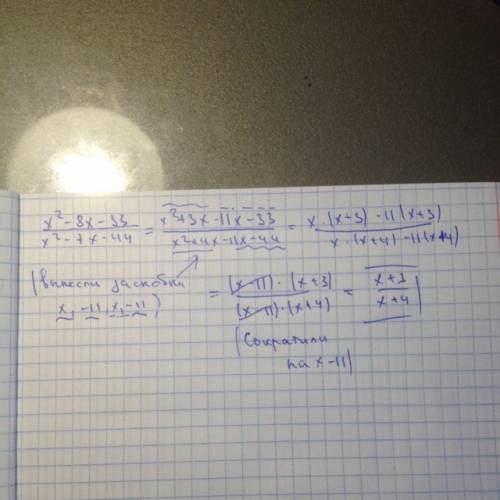 x² - 8x - 33 / x² - 7x - 44 = x² + 3x - 11x - 33 / x² + 4x - 11x - 44 = x · (x+3) - 11(x+3) / x · (x+4) - 11(x+4)
(вынесли за скобки x, -11, x, -11)
= (x-11) · (x+3) / (x-11) · (x+4) = x+3 / x+4
(Сократили
на x-11)